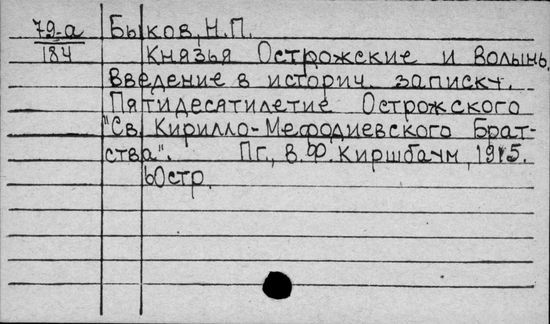 79-а Быков, Н.П.
184 Князья Острожские и Волынь.
Введение в историч. записку.
Пятидесятилетие Острожского
"Св. Кирилло-Мефодиевского Брат-
ства". Пг., В.Ф. Киршбаум, 1915.